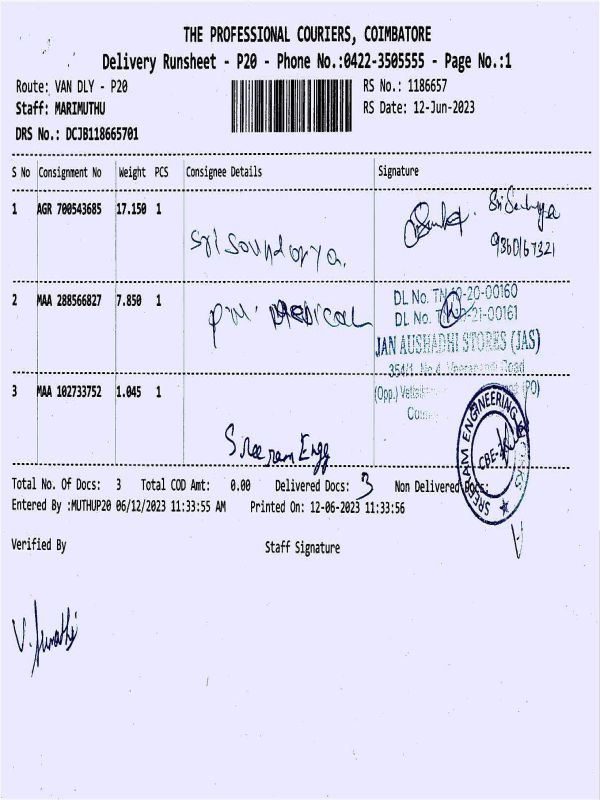 THE PROFESSIONAL COURIERS, COIMBATORE
Delivery Runsheet - P20 - Phone No.:0422-3505555 - Page No.:1
Route: VAN DLY - P20 RS No.: 1186657
Staff: MARIMUTHU RS Date: 12-Jun-2023
DRS No.: DCJB118665701
S No Consignment No Weight PCS Consignee Details Signature
1 AGR 700543685 17.150 1
Sri Soundarya.
2 MAA 288566827 7.850 1
PM. Medical
DL No. 20-00160
DL No. 21-00161
JAN AUSHADHI STORES (JAS)
354/1, No.4, Road
(Opp.) (PO)
3 MAA 102733752 1.045 1
Sreeram Engg
SREERAM ENGINEERING
CBE
Total No. Of Docs: 3 Total COD Amt: 0.00 Delivered Docs: 3 Non Delivered Docs:
Entered By :MUTHUP20 06/12/2023 11:33:55 AM Printed On: 12-06-2023 11:33:56
Verified By Staff Signature